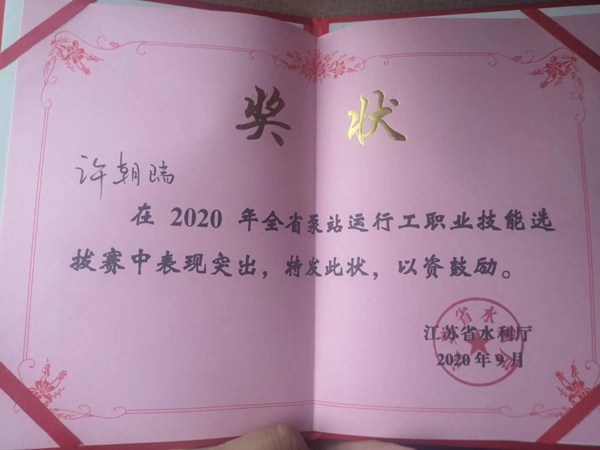 奖状
许朝瑞
在 2020 年全省泵站运行工职业技能选
拔赛中表现突出，特发此状，以资鼓励。
江苏省水利厅
2020 年 9 月